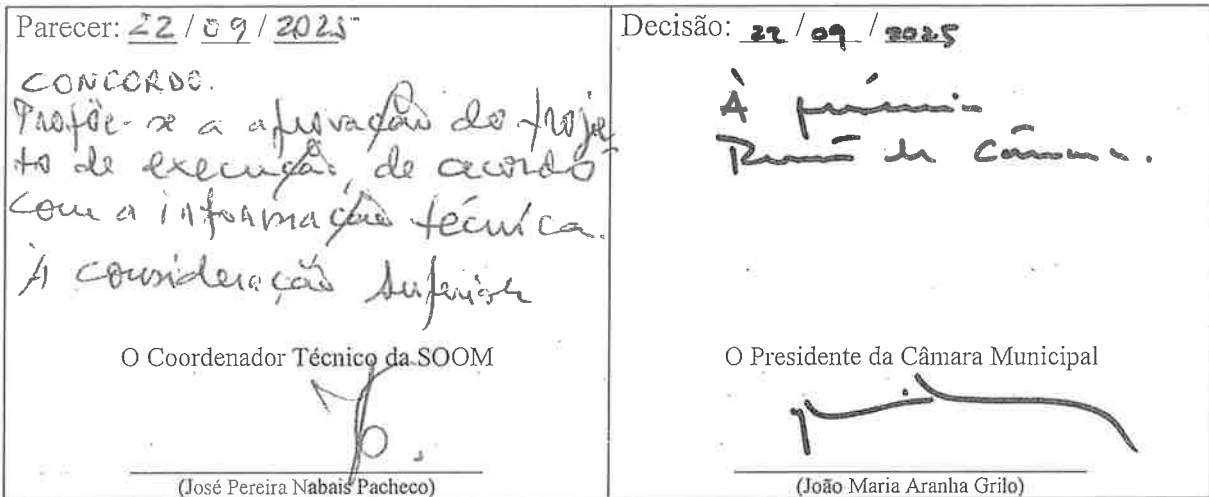 Parecer: 22 / 09 / 2025
CONCORDO.
Propõe-se a aprovação do proje
to de execução, de acordo
com a informação técnica.
À consideração superior
O Coordenador Técnico da SOOM
(José Pereira Nabais Pacheco)
Decisão: 22 / 09 / 2025
À próxima
Reunião de Câmara.
O Presidente da Câmara Municipal
(João Maria Aranha Grilo)